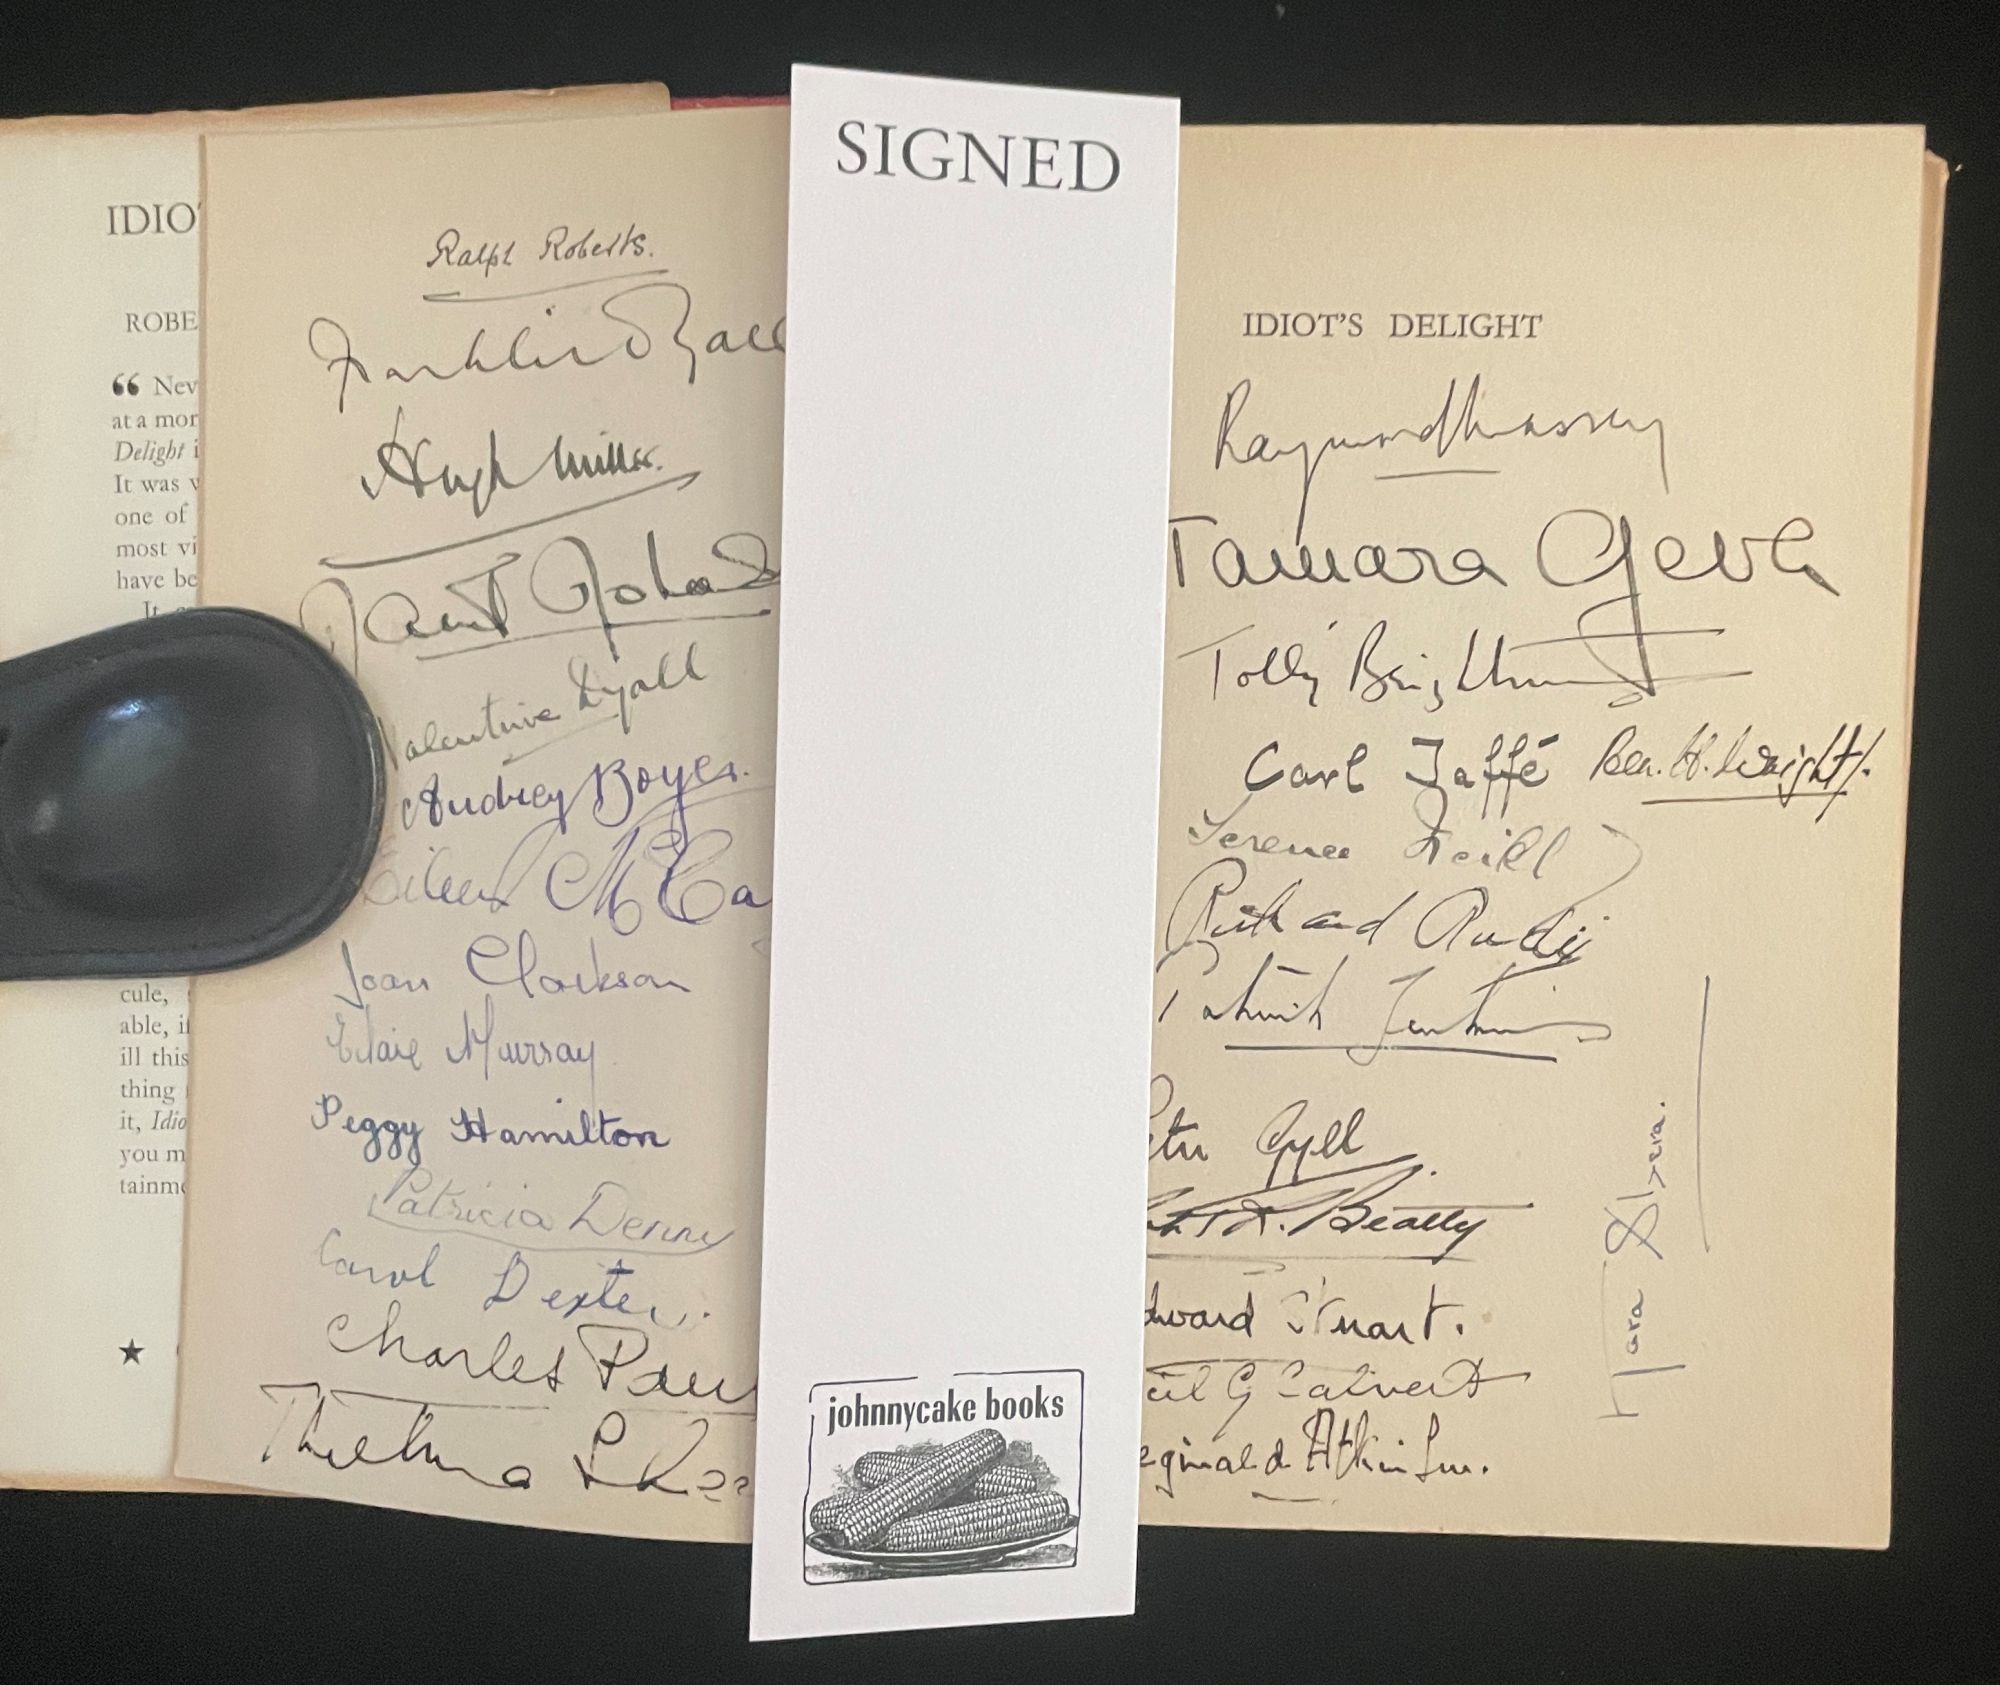 IDIO
ROBE
“ Nev
at a mor
Delight i
It was v
one of
most vi
have be
It
cule,
able, if
ill this
thing
it, Idio
you m
tainme
★
Ralph Roberts.
Franklin Dyall
Hugh Miller.
Valentine Dyall
Audrey Boyes.
Eileen
Joan Clarkson
Murray
Peggy Hamilton
Patricia Denny
Carol Dexter.
Charles
Thelma
SIGNED
johnnycake books
IDIOT'S DELIGHT
Raymond Massey
Tamara Geva
Tolly
Carl Jaffé Ben. H. Wright.
Terence Neill
Patrick
Gyll
Beatty
dward Stuart.
G Calvert
eginald Atkinson.